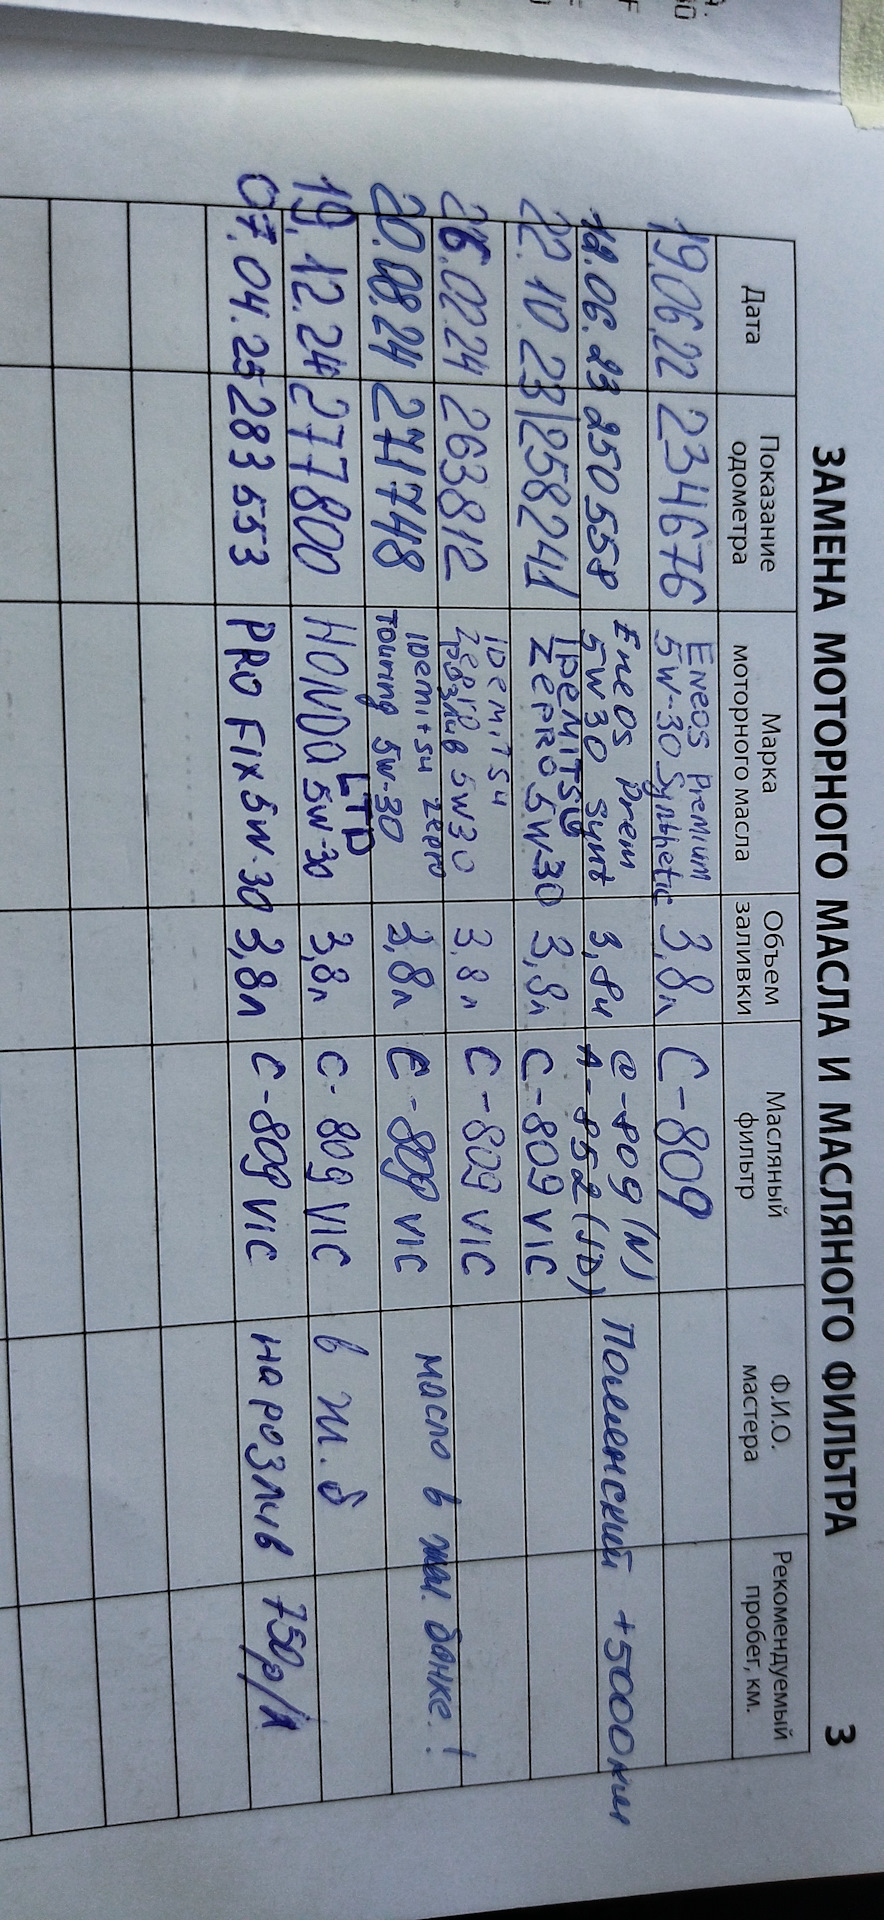 ЗАМЕНА МОТОРНОГО МАСЛА И МАСЛЯНОГО ФИЛЬТРА 3
Дата Показание одометра Марка моторного масла Объем заливки Масляный фильтр Ф.И.О. мастера Рекомендуемый пробег, км.
19.06.22 234676 ENEOS Premium 5W-30 Synthetic 3,8л C-809
12.06.23 250558 Eneos Prem 5W30 Synt 3,8л C-809 (N) A-852 (JD) +5000км
22.10.23 258241 IDEMITSU ZEPRO 5W-30 3,8л C-809 VIC
26.02.24 263812 IDEMITSU Zepro розлив 5W30 3,8л C-809 VIC
20.08.24 271748 IDEMITSU Zepro Touring 5W-30 3,8л C-809 VIC масло в жел. банке!
19.12.24 277800 HONDA LTD 5W-30 3,8л C-809 VIC в ж.б
07.04.25 283553 PROFIX 5W-30 3,8л C-809 VIC на розлив 750р/л